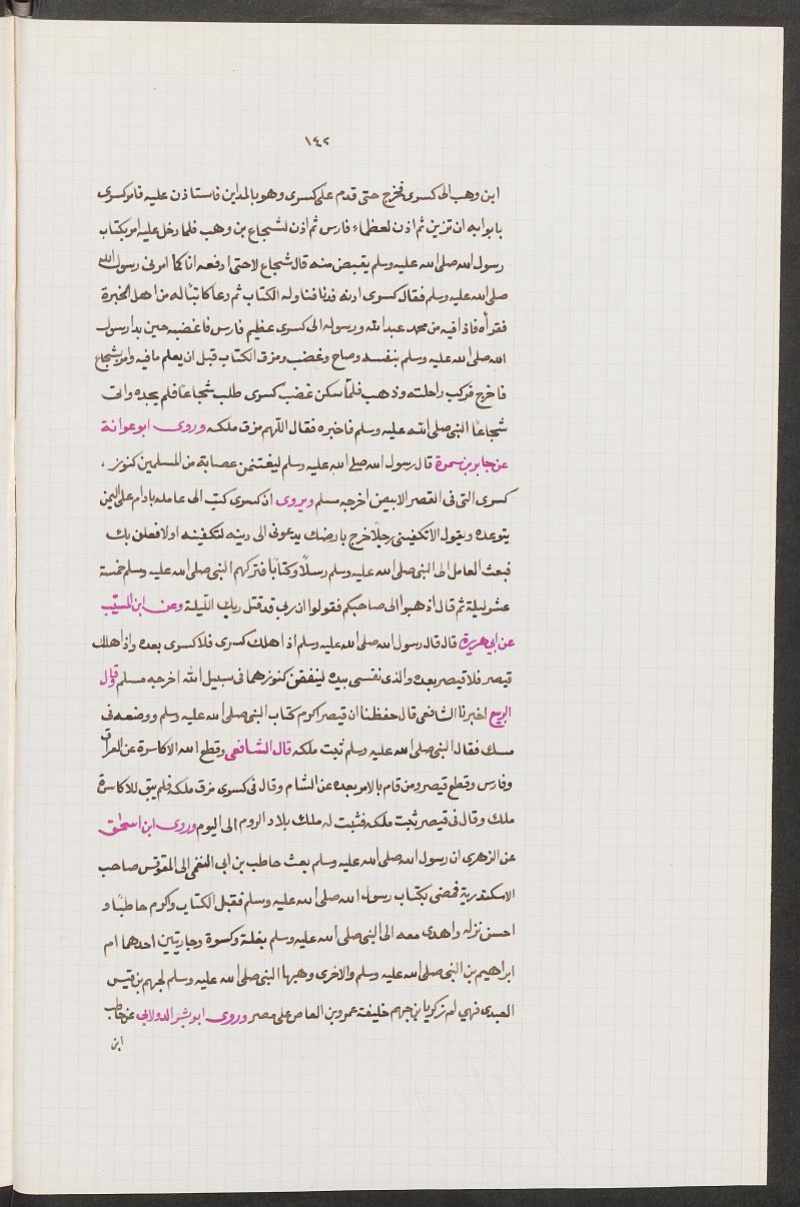 ١٤٢
ابن وهب الى كسرى فخرج حتى قدم على كسرى وهو بالمداين فاستاذن عليه فامر كسرى
بابوابه ان تزين ثم اذن لعظماء فارس ثم اذن لشجاع بن وهب فلما دخل عليه امر بكتاب
رسول الله صلى الله عليه وسلم يقبض منه قال شجاع لا حتى ادفعه انا كما امرنى رسول الله
صلى الله عليه وسلم فقال كسرى ادنه فدنا فناوله الكتاب ثم دعا كاتبًا له من اهل الحيرة
فقرأه فاذا فيه من محمد عبد الله ورسوله الى كسرى عظيم فارس فاغضبه حين بدا رسول
الله صلى الله عليه وسلم بنفسه وصاح وغضب ومزق الكتاب قبل ان يعلم ما فيه وامر بشجاع
فاخرج فركب راحلته وذهب فلمّا سكن غضب كسرى طلب شجاعًا فلم يجده واتى
شجاعًا النبى صلى الله عليه وسلم فاخبره فقال اللّهم مزق ملكه وروى ابو عوانة
عن جابر بن سمرة قال رسول الله صلى الله عليه وسلم ليفتتحن عصابة من المسلمين كنوز ،
كسرى التى فى القصر الابيض اخرجه مسلم ويروى ان كسرى كتب الى عامله بادام على اليمن
يتوعده ويقول الا تكفينى رجلًا خرج بارضك يدعونى الى دينه لتكفينه او لافعلن بك
فبعث العامل الى النبى صلى الله عليه وسلم رسلًا وكتابًا فتركهم النبى صلى الله عليه وسلم خمسة
عشر ليلة ثم قال اذهبوا الى صاحبكم فقولوا ان ربى قد قتل ربك اللّيلة وعن ابن المسيّب
عن ابى هريرة قال قال رسول الله صلى الله عليه وسلم اذا هلك كسرى فلا كسرى بعده واذا هلك
قيصر فلا قيصر بعده والذى نفسى بيده لينفقن كنوزهما فى سبيل الله اخرجه مسلم وقال
الربيع اخبرنا الشافعى قال حفظنا ان قيصر اكرم كتاب النبى صلى الله عليه وسلم ووضعه فى
مسك فقال النبى صلى الله عليه وسلم ثبت ملكه قال الشافعى وقطع الله الاكاسرة عن العراق
وفارس وقطع قيصر ومن قام بالامر بعده عن الشام وقال فى كسرى مزق ملكه فلم يبق للاكاسرة
ملك وقال فى قيصر ثبت ملكه فثبت له ملك بلاد الروم الى اليوم وروى ابن اسحٰق
عن الزهرى ان رسول الله صلى الله عليه وسلم بعث حاطب بن ابى الى المقوقس صاحب
الاسكندرية فمضى بكتاب رسول الله صلى الله عليه وسلم فقبل الكتاب واكرم حاطبًا و
احسن نزله واهدى معه الى النبى صلى الله عليه وسلم بغلة وكسوة وجاريتين احدهما ام
ابراهيم بن النبى صلى الله عليه وسلم والاخرى وهبها النبى صلى الله عليه وسلم لجهم بن قيس
العبدى فهى ام زكريا بن جهم خليفة عمرو بن العاص على مصر وروى ابو بشر الدولابى عن حاطب
ابن